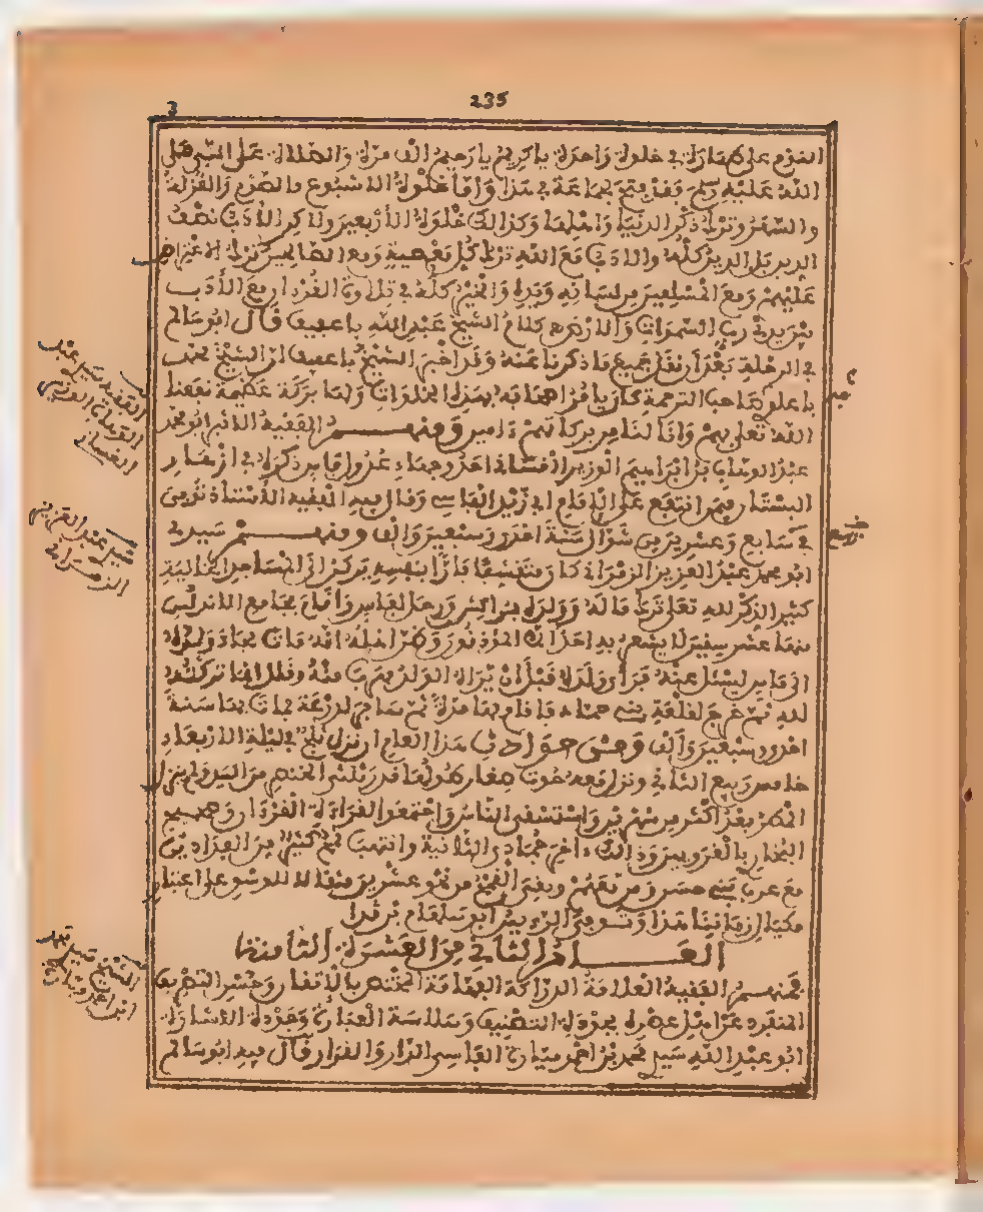 235
3
الصوم على طهارة في خلوة واحدة يا كريم يا رحيم ألف مرة والصلاة على النبي صلى
الله عليه وسلم وقد يتم بجماعة في هذا وأما خلوة الأسبوع فالصوم والعزلة
والسهر وترك ذكر الدنيا وأهلها وكذلك خلوة الأربعين ولاكن الأدب نصف
الدين بل الدين كله والأدب مع الله ترك كل معصية ومع الصالحين ترك الاعتراض
عليهم ومع المسلمين من لسانه ويده والخير كله في تلاوة القرءان مع الأدب
بين يدي رب السموات والأرض كلام الشيخ عبد الله باعفيف قال أبو سالم
في الرحلة بعد أن نقل جميع ما ذكرنا عنه وقد أخبر الشيخ باعفيف أن الشيخ محمد
باعلوي صاحب الترجمة كان يأمر أصحابه بهذه الخلوات ولها بركة عظيمة نفعنا
الله تعلى بهم وأنالنا من بركاتهم ءامين ومنهم الفقيه الأبر أبو محمد
عبد الوهاب بن إبراهيم الوزير الغساني أحد وجهاء عدول فاس ذكره في أزهار
البستان فيمن انتفع على الإمام ابن زيد الفاسي وقال فيه الفقيه الأستاذ توفي
في سابع وعشرين من شوال سنة أحد وسبعين وألف ومنهم سيدي
أبو محمد عبد العزيز الزهراني كان متقشفا فارا بنفسه يركن إلى المساجد الخالية
كثير الذكر لله تعلى ترك ماله وولده بمراكش ورحل لفاس وأقام بجامع الأندلس
منها عشر سنين لا يشعر به أحد إلى المؤذنون وظن أهله أنه مات فجاء ولده
إلى فاس ليسئل عنه فرأى ولده قبل أن يراه الولد فهرب منه وقال إنما تركته
لله ثم خرج لقلعة بني حماد فأقام بها مدة ثم سافر لدرعة فمات بها سنة
أحد وسبعين وألف ومن حوادث هذا العام أن نزل ثلج في ليلة الأربعاء
خامس ربيع الثاني ونزل معه حوت صغار طولها قدر ثلثي الخنصر من اليد ولم ينزل
المطر بعد أكثر من شهرين واستسقى الناس واجتمعوا لقراءة القرءان وصحيح
البخاري بالقرويين وذلك ءاخر جمادى الثانية وانتهب قمح كثير من الفرادين
مع عرب بني حسن ومن معهم وبقي القمح من نحو عشرين مثقالا للوسق على اعتبار
مكيال زماننا هذا وتوفي الرويس أبو سلهام بن كدار
العام الثاني من العشرة الثامنة
فمنهم الفقيه العلامة الدراكة الفهامة المختص بالإتقان وحسن التصريف
المنفرد عن أهل عصره بجودة التصنيف وسلاسة العبارة وجودة الإشارة
أبو عبد الله سيدي محمد بن أحمد ميارة الفاسي الدار والقرار قال فيه أبو سالم
الفقيه سيدي عبد
الوهاب الوزير
الغساني
سيدي عبد العزيز
الزهراني
الشيخ سيدي محمد
ابن أحمد ميارة